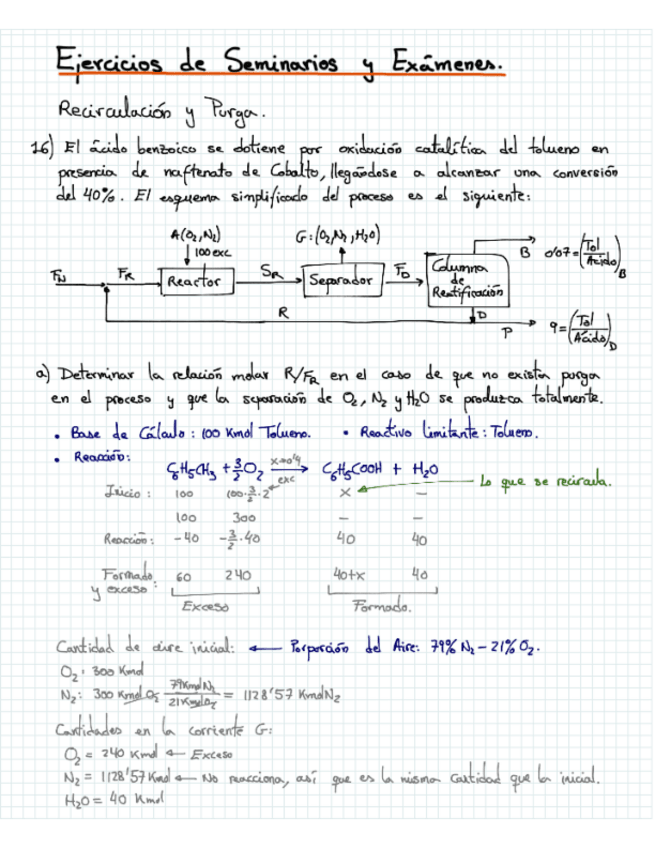 Ejercicios de Seminarios y Exámenes.
Recirculación y Purga.
16) El ácido benzoico se obtiene por oxidación catalítica del tolueno en
presencia de naftenato de Cobalto, llegándose a alcanzar una conversión
del 40%. El esquema simplificado del proceso es el siguiente:
A(O₂,N₂)
G:(O₂,N₂,H₂O)
100 exc
B 0'07=(Tol/Ácido)B
FN
FR
Reactor
SR
Separador
FD
Columna
de
Rectificación
R
D
P
q=(Tol/Ácido)D
a) Determinar la relación molar R/FR en el caso de que no exista purga
en el proceso y que la separación de O₂, N₂ y H₂O se produzca totalmente.
• Base de Cálculo: 100 Kmol Tolueno. • Reactivo limitante: Tolueno.
• Reacción:
C₆H₅CH₃ + 3/2 O₂ X=0'4 exc → C₆H₅COOH + H₂O
Lo que se recircula.
Inicio: 100 100·3/2·2 x –
100 300 – –
Reacción: -40 -3/2·40 40 40
Formado y exceso: 60 240 40+x 40
Exceso Formado.
Cantidad de aire inicial: ← Porporción del Aire: 79% N₂ – 21% O₂.
O₂: 300 Kmol
N₂: 300 KmolO₂ 79KmolN₂/21KmolO₂ = 1128'57 KmolN₂
Cantidades en la corriente G:
O₂ = 240 Kmol ← Exceso
N₂ = 1128'57 Kmol ← No reacciona, así que es la misma cantidad que la inicial.
H₂O = 40 Kmol